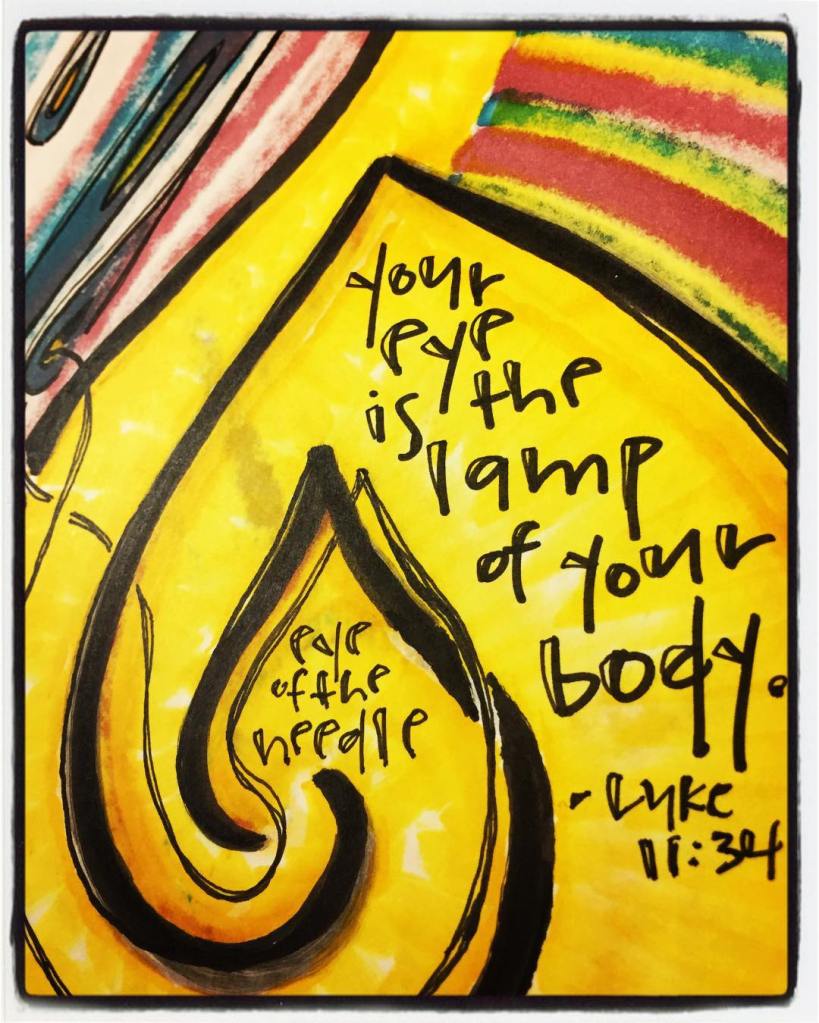 your
eye
is the
lamp
of your
body.
- Luke
11:34
eye
of the
needle